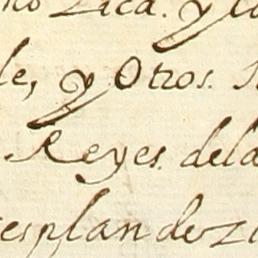 no Lica. y lo
le, y Otros.
Reyes. dela
esplandezi